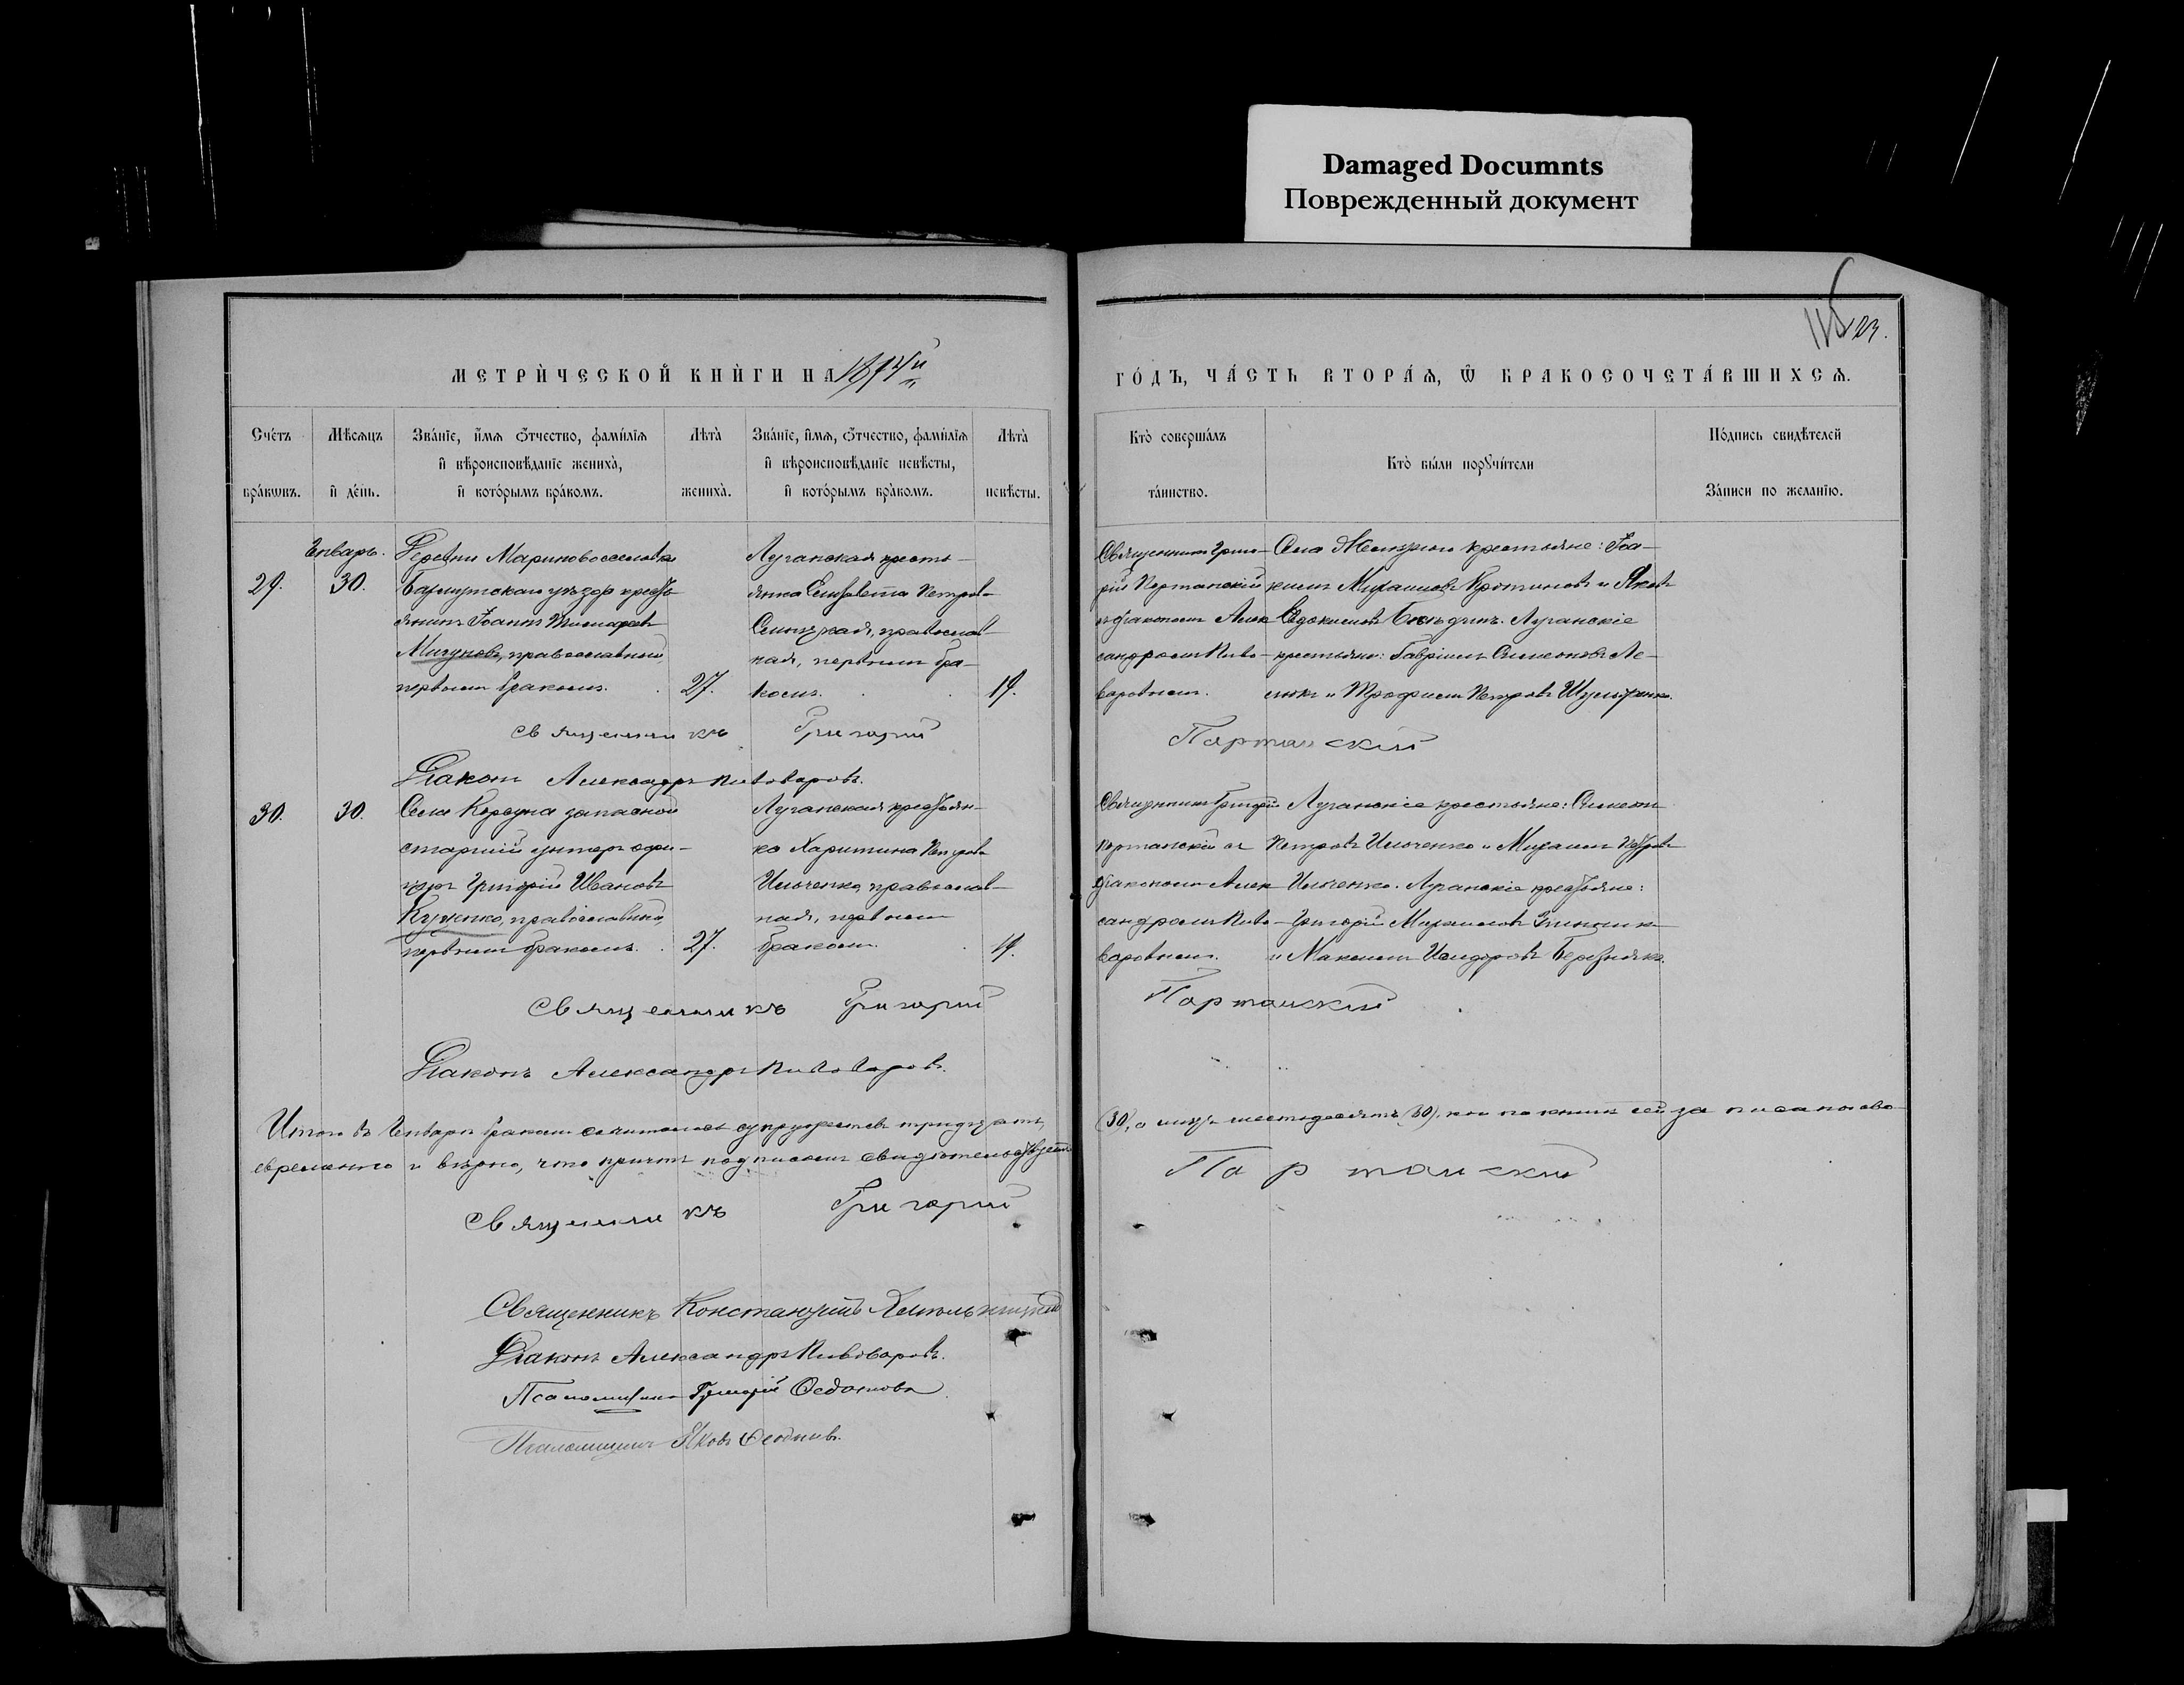 Damaged Documnts
Поврежденный документ
23.
МЕТРИ́ЧЕСКОЙ КНИ́ГИ НА
ГО́ДЪ, ЧА́СТЬ ВТОРА́Ѧ, Ѽ БРАКОСОЧЕТА́ВШИХСѦ.
Сче́тъ бра́кѡвъ.
Мѣ́сѧцъ и҆ де́нь.
Зва́нїе, и҆́мѧ ѻ҆́тчество, фами́лїѧ
и҆ вѣроисповѣ́данїе жениха̀,
и҆ кото́рымъ бра́комъ.
Лѣта̀ жениха̀.
Зва́нїе, и҆́мѧ, ѻ҆́тчество, фами́лїѧ
и҆ вѣроисповѣ́данїе невѣ́сты,
и҆ кото́рымъ бра́комъ.
Лѣта̀ невѣ́сты.
Кто̀ соверша́лъ та́инство.
Кто̀ бы́ли порꙋчи́тели
По́дпись свидѣ́телей
За́писи по жела́нїю.
Январь.
29.
30.
Деревни Мариновоселовки
Бахмутскаго уѣзда кресть-
янинъ Іоаннъ
православный
первымъ бракомъ.
27.
Луганская кресть-
янка Елисавета Петрова
православ-
ная, первымъ бра-
комъ.
19.
Священникъ Григо-
рій Портанскій
съ діакономъ Алек
сандромъ Пиво-
варовымъ.
Села крестьяне: Іоа-
кимъ Михаиловъ и Яковъ
Евдокимовъ Луганскіе
крестьяне: Гавріилъ Симеоновъ Ле-
и Трофимъ Петровъ
Священникъ Григорій Портанскій
Діаконъ Александръ Пивоваровъ.
30.
30.
Села Корсуна запасной
старшій унтеръ офи-
церъ Григорій Ивановъ
православный,
первымъ бракомъ.
27.
Луганская крестьян-
ка Харитина Петрова
Ильченко, православ-
ная, первымъ
бракомъ.
19.
Священникъ Григорій
Портанскій съ
діакономъ Алек
сандромъ Пиво-
варовымъ.
Луганскіе крестьяне: Симеонъ
Петровъ Ильченко и Михаилъ Петровъ
Ильченко. Луганскіе крестьяне:
Григорій Михаиловъ
и Максимъ Исидоровъ Березнякъ.
Священникъ Григорій Портанскій
Діаконъ Александръ Пивоваровъ.
Итого въ Январѣ бракомъ сочиталось супружествъ тридцать (30), а лицъ шестьдесятъ (60), кои по книгѣ сей записаны сво-
евременно и вѣрно, что причтъ подписомъ свидѣтельствуетъ
Священникъ Григорій Портанскій
Священникъ Константинъ
Діаконъ Александръ Пивоваровъ.
Псаломщикъ Григорій
Псаломщикъ Яковъ